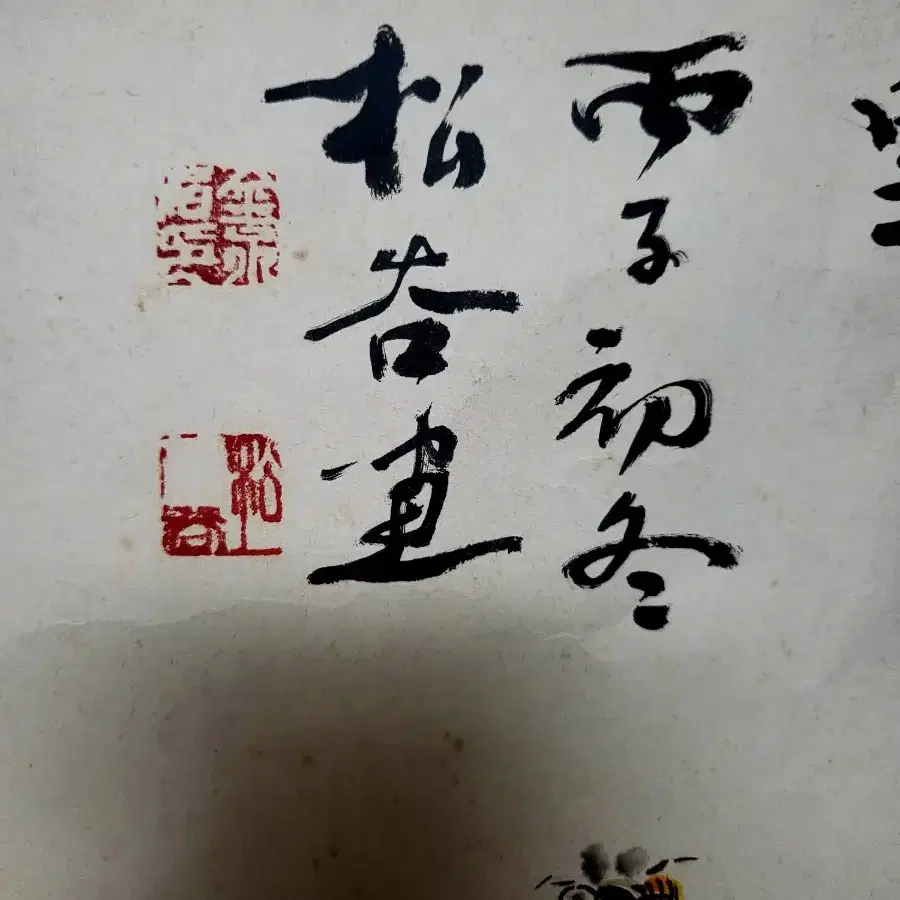 丙子初冬
松谷畫
松谷